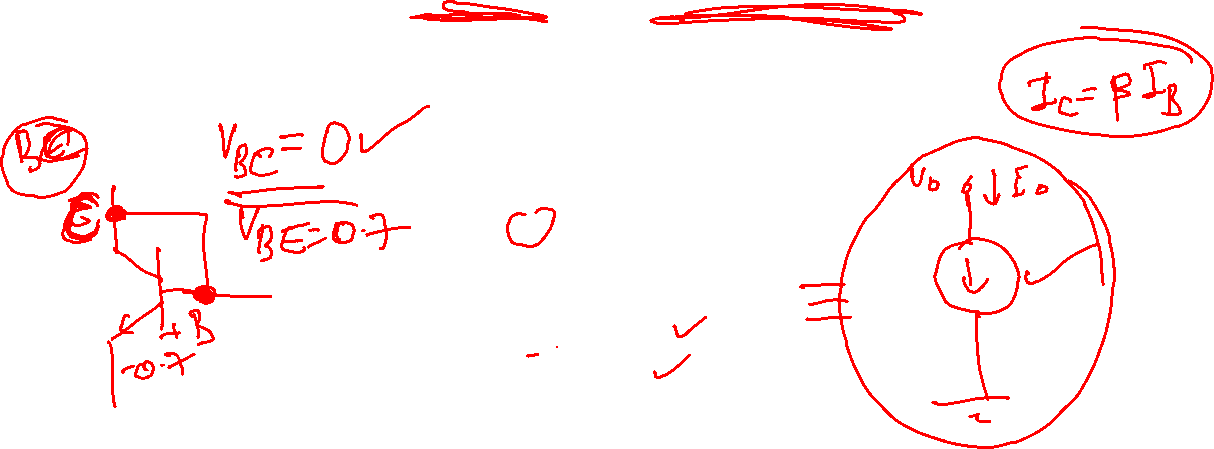 I_C = β I_B
V_BC = 0 ✓
V_BE = 0.7
C
+ B
-0.7
V_0 ↓ I_0